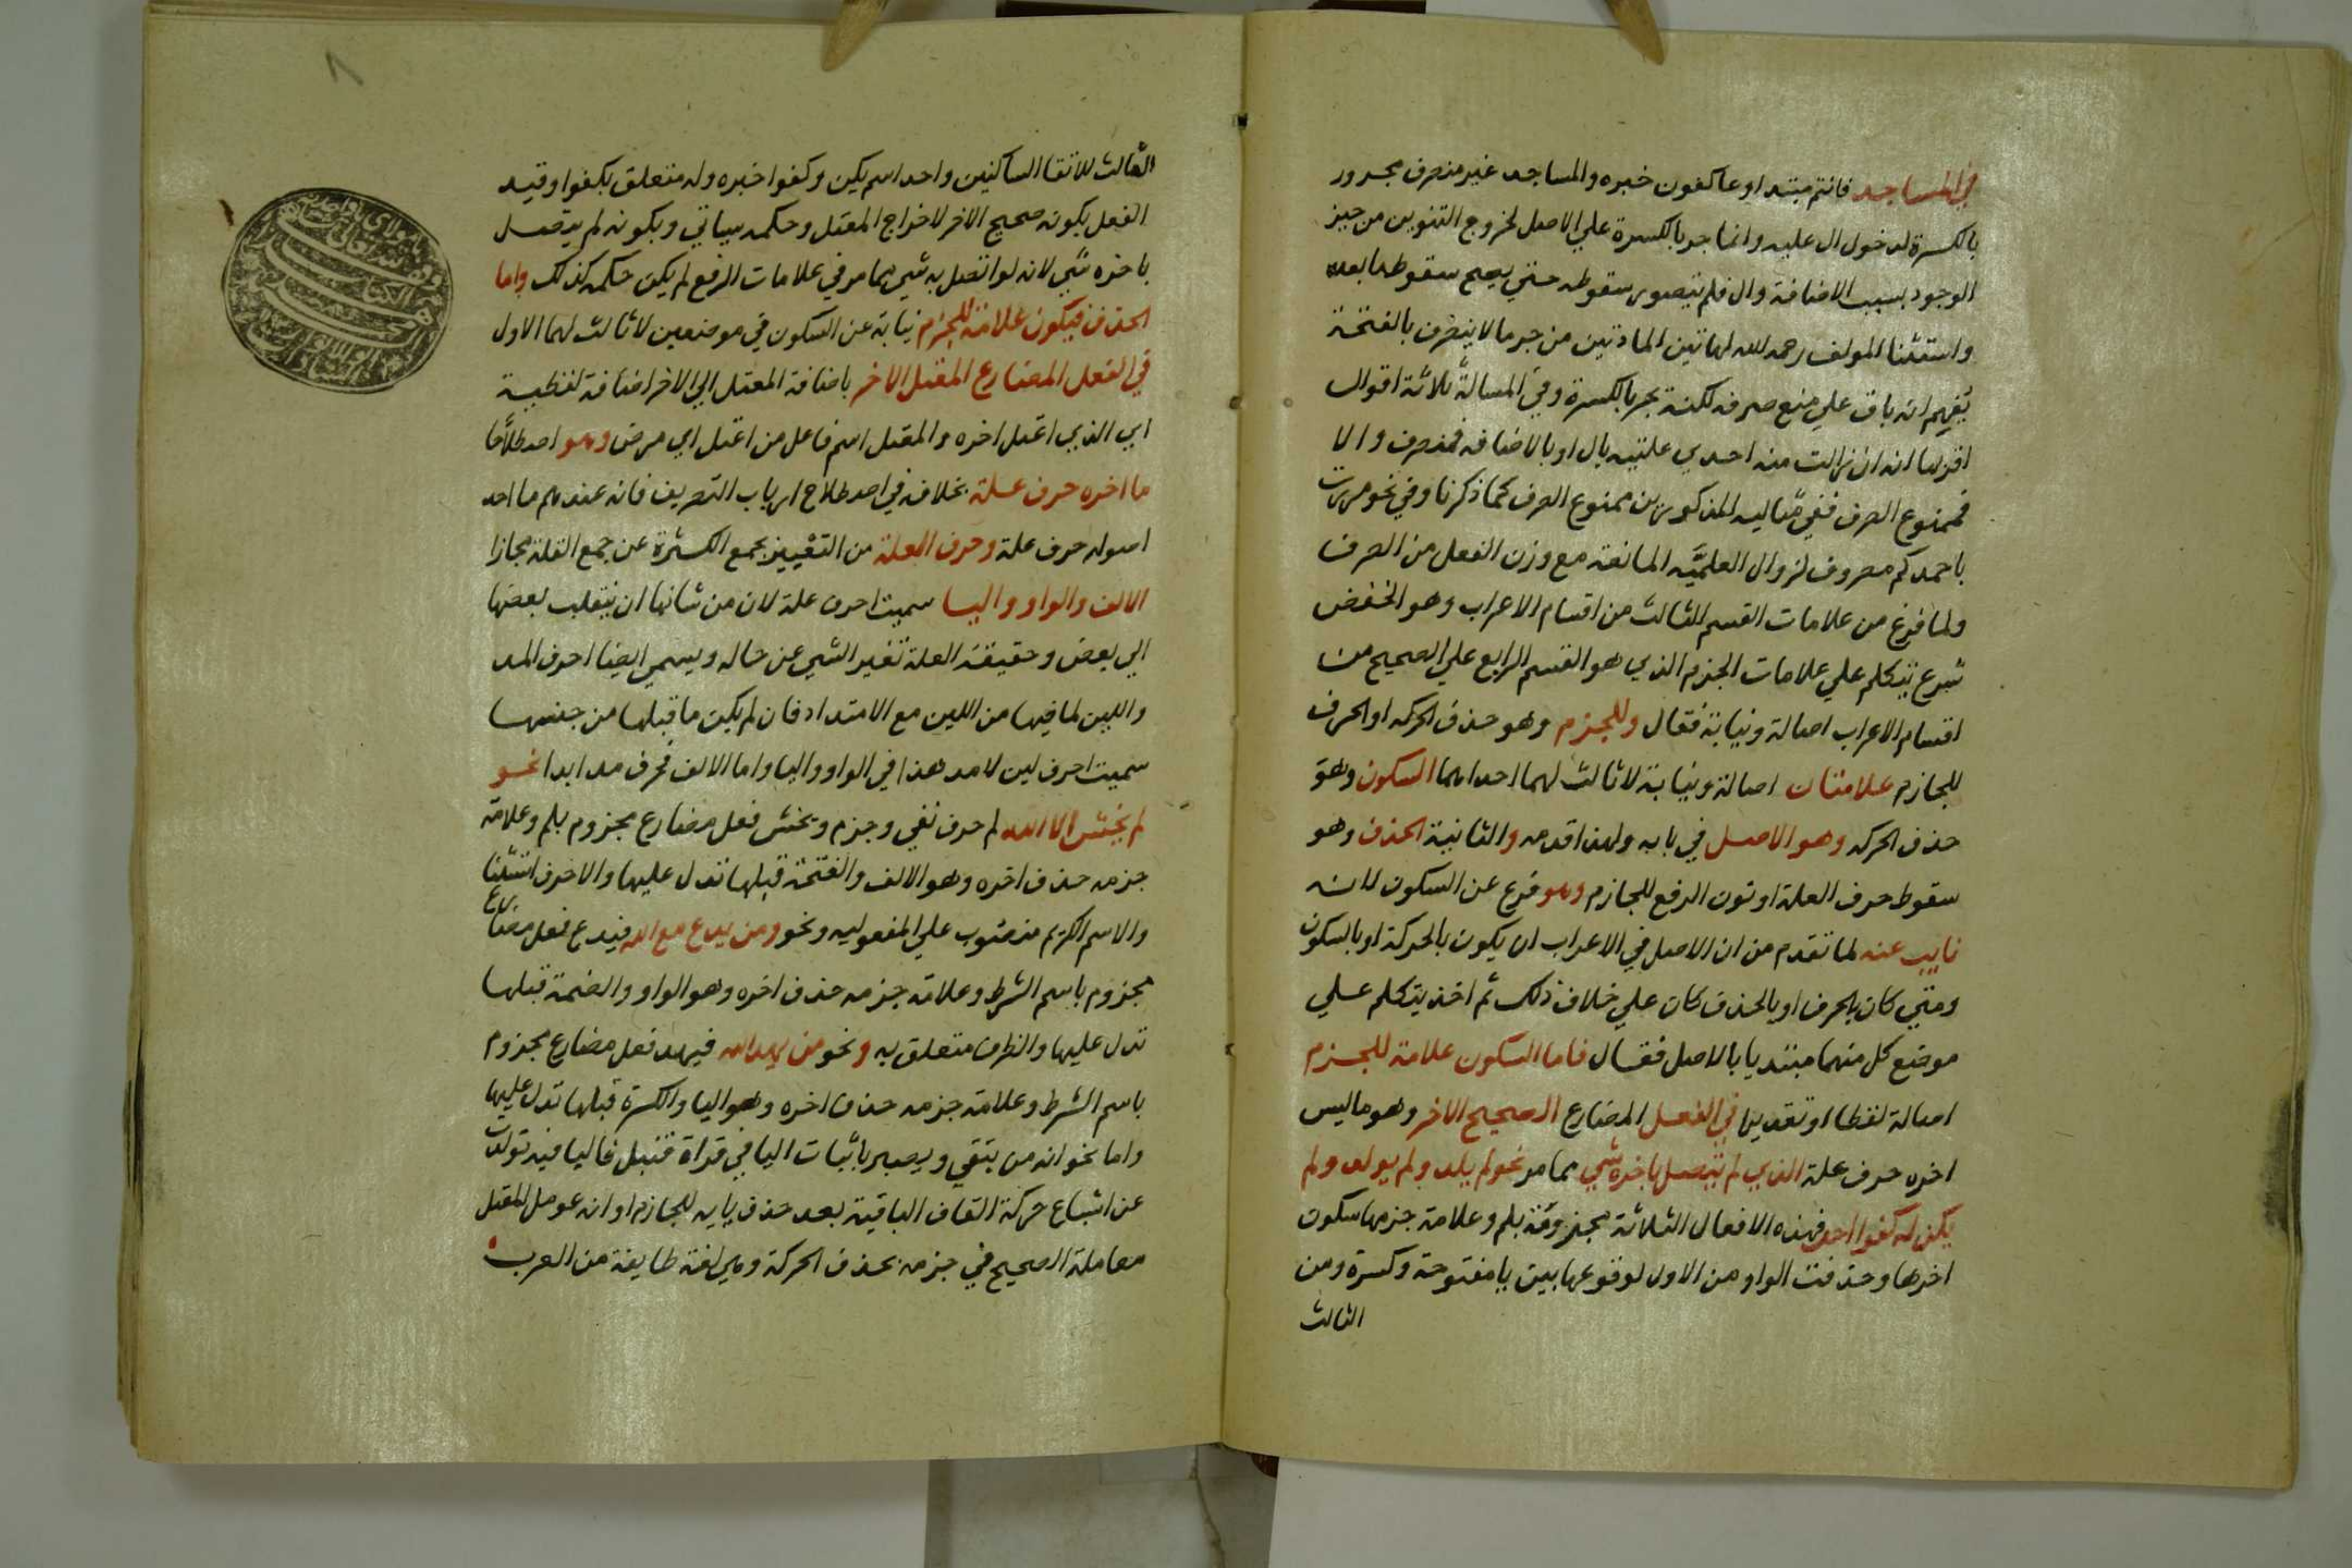 في المساجد فانتم مبتدا وعاكفون خبره والمساجد غير منصرف مجرور
بالكسرة لدخول ال عليه وانما جر بالكسرة علي الاصل لخروج التنوين من حيز
الوجود بسبب الاضافة وال فلم يتصور سقوطه حتي يصح سقوطها بعده
واستثنا المولف رحمه الله لهاتين المادتين من جر ما لا ينصرف بالفتحة
يفهم انه باق علي منع صرفه لكنه يجر بالكسرة وفي المسالة ثلاثة اقوال
اقربها انه ان زالت منه احدي علتيه بال او بالاضافه فمنصرف والا
فممنوع الصرف ففي مثاليه المذكورين ممنوع الصرف كما ذكرنا وفي نحو مررت
باحمدكم مصروف لزوال العلميه المانعة مع وزن الفعل من الصرف
ولما فرغ من علامات القسم الثالث من اقسام الاعراب وهو الخفض
شرع يتكلم علي علامات الجزم الذي هو القسم الرابع علي الصحيح من
اقسام الاعراب اصالة ونيابة فقال وللجزم وهو حذف الحركه او الحرف
للجازم علامتان اصالة ونيابة لا ثالث لهما احداهما السكون وهو
حذف الحركه وهو الاصل في بابه ولهذا قدمه والثانية الحذف وهو
سقوط حرف العلة او نون الرفع للجازم وهو فرع عن السكون لانه
نايب عنه لما تقدم من ان الاصل في الاعراب ان يكون بالحركة او بالسكون
ومتي كان بالحرف او بالحذف كان علي خلاف ذلك ثم اخذ يتكلم علي
موضع كل منهما مبتديا بالاصل فقال فاما السكون علامة للجزم
اصالة لفظا او تقديرا في الفعل المضارع الصحيح الاخر وهو ما ليس
اخره حرف علة الذي لم يتصل باخره شي مما مر نحو لم يلد ولم يولد ولم
يكن له كفوا احد فهذه الافعال الثلاثة مجزومة بلم وعلامة جزمها سكون
اخرها وحذفت الواو من الاول لوقوعها بين يا مفتوحة وكسرة ومن
الثالث
الثالث لالتقا الساكنين واحد اسم يكن وكفوا خبره وله متعلق بكفوا وقيد
الفعل بكونه صحيح الاخر لاخراج المعتل وحكمه سياتي وبكونه لم يتصل
باخره شي لانه لو اتصل به شي مما مر في علامات الرفع لم يكن حكمه كذلك واما
الحذف فيكون علامة للجزم نيابة عن السكون في موضعين لا ثالث لهما الاول
في الفعل المضارع المعتل الاخر باضافة المعتل الي الاخر اضافة لفظية
اي الذي اعتل اخره والمعتل اسم فاعل من اعتل اي مرض وهو اصطلاحا
ما اخره حرف علة بخلافه في اصطلاح ارباب التصريف فانه عندهم ما احد
اصوله حرف علة وحرف العلة من التعبير بجمع الكثرة عن جمع القلة مجازا
الالف والواو واليا سميت احرف علة لان من شانها ان ينقلب بعضها
الي بعض وحقيقة العلة تغير الشي عن حاله ويسمي ايضا احرف المد
واللين لما فيها من اللين مع الامتداد فان لم يكن ما قبلها من جنسها
سميت احرف لين لا مد هذا في الواو واليا واما الالف فحرف مد ابدا نحو
لم يخش الا الله لم حرف نفي وجزم ويخش فعل مضارع مجزوم بلم وعلامة
جزمه حذف اخره وهو الالف والفتحة قبلها تدل عليها والا حرف استثنا
والاسم الكريم منصوب علي المفعوليه ونحو ومن يدع مع الله فيدع فعل مضارع
مجزوم باسم الشرط وعلامة جزمه حذف اخره وهو الواو والضمة قبلها
تدل عليها والظرف متعلق به ونحو من يهد الله فيهد فعل مضارع مجزوم
باسم الشرط وعلامة جزمه حذف اخره وهو اليا والكسرة قبلها تدل عليها
واما نحو انه من يتقي ويصبر باثبات اليا في قراة قنبل فاليا فيه تولدت
عن اشباع حركة القاف الباقية بعد حذف يايه للجازم او انه عومل المعتل
معاملة الصحيح في جزمه بحذف الحركة وهي لغة طايفة من العرب